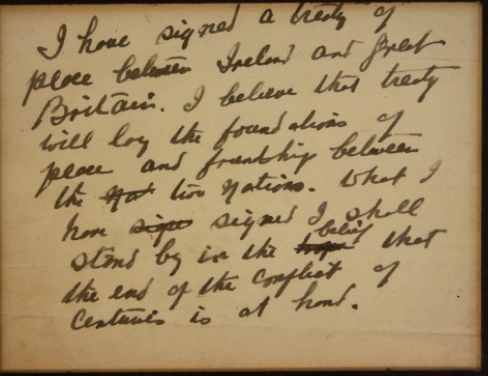 I have signed a treaty of
peace between Ireland and great
Britain. I believe that treaty
will lay the foundations of
peace and friendship between
the Nat two Nations. What I
have sign signed I shall
stand by in the hope belief that
the end of the conflict of
centuries is at hand.